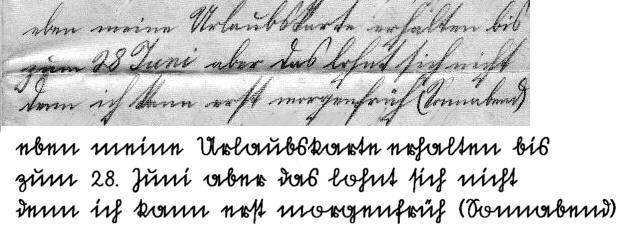 eben meine Urlaubskarte erhalten bis
zum 28 Juni aber das lohnt sich nicht
denn ich kann erst morgenfrüh (Sonnabend)
eben meine Urlaubskarte erhalten bis
zum 28. Juni aber das lohnt sich nicht
denn ich kann erst morgenfrüh (Sonnabend)